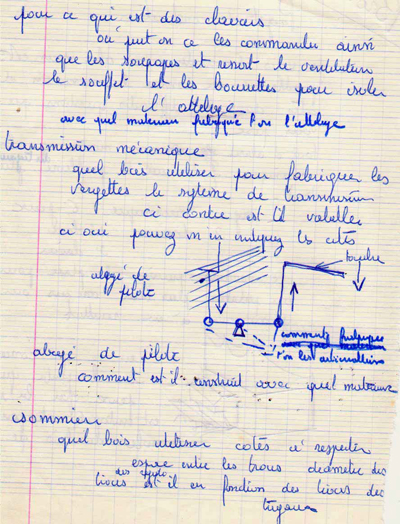 pour ce qui est des claviers
où peut on ce les commander ainsi
que les soupapes et ressort le ventilateur
le soufflet et les bourrettes pour isoler
l'attelage
avec quel materiau fabrique l'on l'attelage
transmission mécanique
quel bois utiliser pour fabriquer les
vergettes le système de transmission
ci contre est il valable
si oui pouvez vs m'en indiquez les cotés
abrégé de
pilote
touche
comment fabrique
avec quel materiau
l'on les articulations
abrégé de pilote
comment est il construit avec quel materiaux
sommier
quel bois utiliser cotés a respecter
espace entre les trous diametre des
trous est il en fonction des trous des
tuyaux